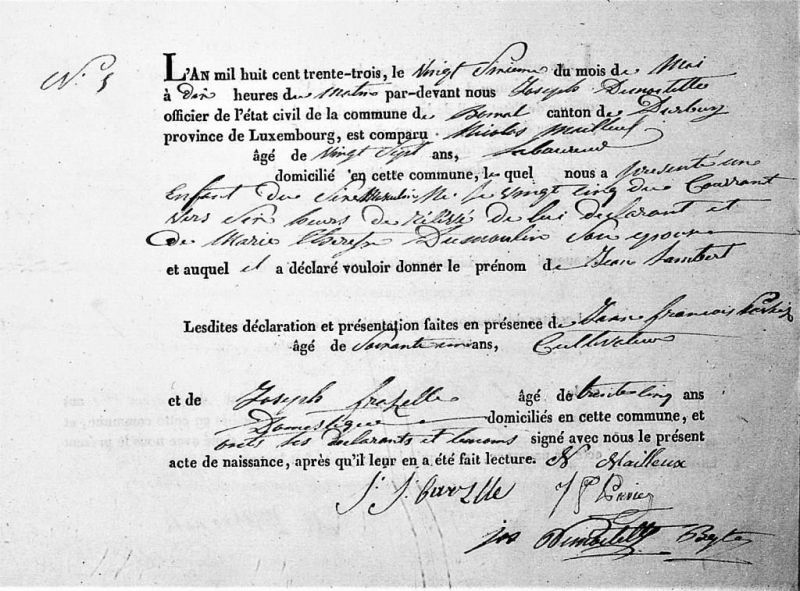 N.º 5
L'AN mil huit cent trente-trois, le vingt sixieme du mois de Mai
à dix heures du matin par-devant nous Joseph Dumostelle
officier de l'état civil de la commune de Bomal canton de Durbuy
province de Luxembourg, est comparu Nicolas Mailleux
âgé de vingt sept ans, laboureur
domicilié en cette commune, le quel nous a presenté un
Enfant du Sexe Masculin Né le vingt cinq du Courrant
vers six heures de de lui declarant et
de Marie Therese Dumoulin son epouse
et auquel il a déclaré vouloir donner le prénom de Jean Lambert
Lesdites déclaration et présentation faites en présence de Jean francois
âgé de Soixante un ans, Cultivateur
et de Joseph frazelle âgé de trente cinq ans
Domestique domiciliés en cette commune, et
ont les declarants et temoins signé avec nous le présent
acte de naissance, après qu'il leur en a été fait lecture. N Mailleux